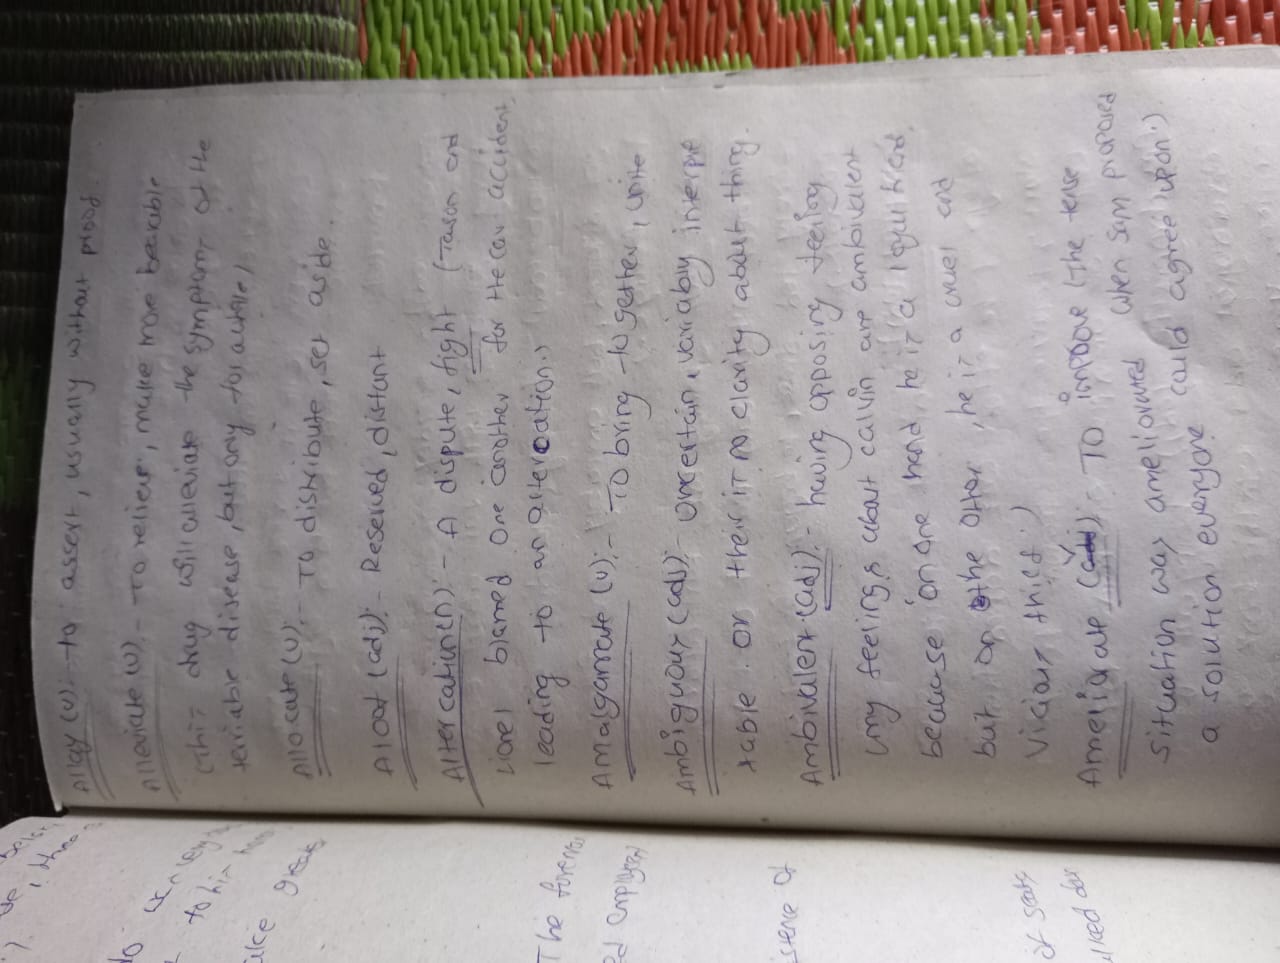 Allagy (v):- to assert, usually without proof.
Alleviate (v):- To relieve, make more bearable
(This drug will alleviate the symptoms of the
terriable disease, but only for a while)
Allocate (v):- To distribute, set aside.
Aloof (adj):- Reserved, distant
Altercation (n):- A dispute, fight (Jason and
Lionel blamed one another for the car accident,
leading to an altercation.)
Amalgamate (v):- To bring together, unite
Ambiguous (adj):- Uncertain, variably interpre
table. or their is no clarity about thing.
Ambivalent (adj):- having opposing feeling
(my feelings about calvin are ambivalent
because on one hand, he is a loyal friend
but on the other, he is a cruel and
vicious thief.)
Ameliorate (v):- To improve (The tense
situation was ameliorated when sam proposed
a solution everyone could agree upon.)
to his
The
of
of seats